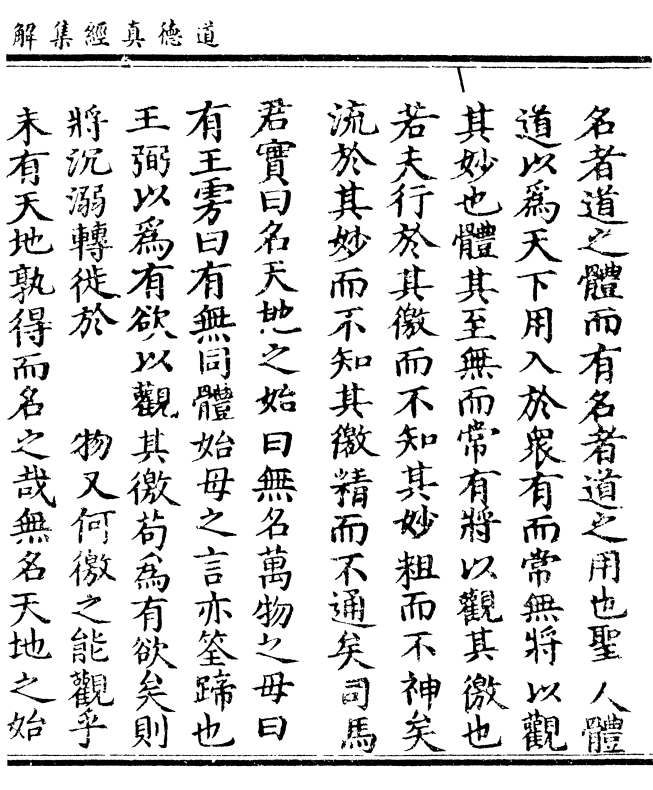 道德真經集解
名者道之體而有名者道之用也聖人體
道以爲天下用入於衆有而常無將以觀
其妙也體其至無而常有將以觀其徼也
若夫行於其徼而不知其妙粗而不神矣
流於其妙而不知其徼精而不通矣司馬
君實曰名天地之始曰無名萬物之母曰
有王雱曰有無同體始母之言亦筌蹄也
王弼以爲有欲以觀其徼苟爲有欲矣則
將沉溺轉徙於 物又何徼之能觀乎
未有天地孰得而名之哉無名天地之始